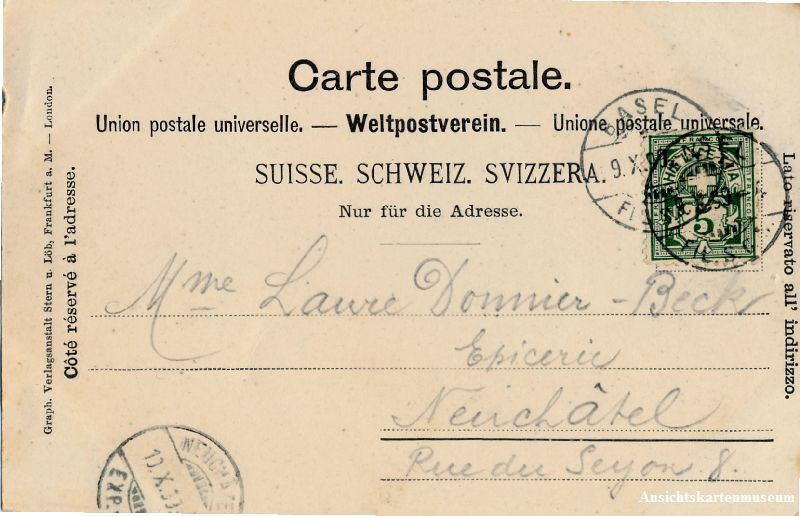 Carte postale.
Union postale universelle. — Weltpostverein. — Unione postale universale.
SUISSE. SCHWEIZ. SVIZZERA.
Nur für die Adresse.
Graph. Verlagsanstalt Stern u. Löb, Frankfurt a. M. — London.
Côté réservé à l'adresse.
Lato riservato all' indirizzo.
BASEL
9.X.
HELVETIA
5
Mme Laure Donnier-Beck
Epicerie
Neuchâtel
Rue du Seyon 8.
10.X.
EXP.
Ansichtskartenmuseum